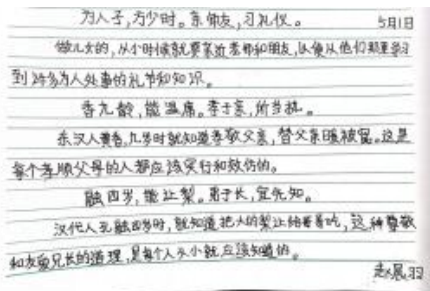 为人子,方少时。亲师友,习礼仪。 5月1日
做儿女的,从小时候就要亲近老师和朋友,以便从他们那里学习
到许多为人处事的礼节和知识。
香九龄,能温席。孝于亲,所当执。
东汉人黄香,九岁时就知道孝敬父亲,替父亲暖被窝。这是
每个孝顺父母的人都应该实行和效仿的。
融四岁,能让梨。弟于长,宜先知。
汉代人孔融四岁时,就知道把大的梨让给哥哥吃,这种尊敬
和友爱兄长的道理,是每个人从小就应该知道的。
赵晨羽